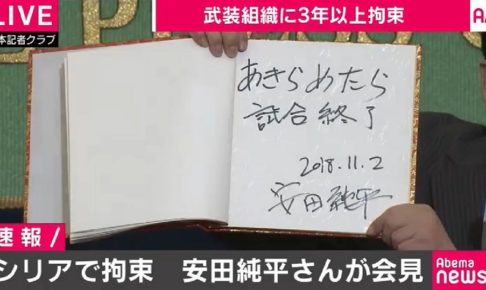 LIVE
本記者クラブ
武装組織に3年以上拘束
あきらめたら
試合終了
2018.11.2
安田純平
速報/
シリアで拘束 安田純平さんが会見
Abema
news/